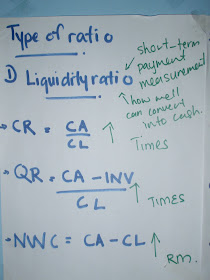 Type of ratio
1) Liquidity ratio
short-term
payment
measurement
how well
can convert
into cash.
- CR = CA
CL
Times
- QR = CA - INV
CL
TIMES
- NWC = CA - CL
RM.